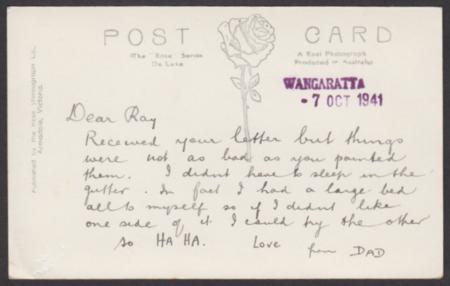 POST CARD
The "Rose" Series
De Luxe
A Real Photograph
Produced in Australia
WANGARATTA
- 7 OCT 1941
Published by the Rose Stereograph Co.
Armadale, Victoria.
Dear Ray
Received your letter but things
were not as bad as you painted
them. I didnt have to sleep in the
gutter. In fact I had a large bed
all to myself so if I didnt like
one side of it I could try the other
so HA HA. Love
from DAD